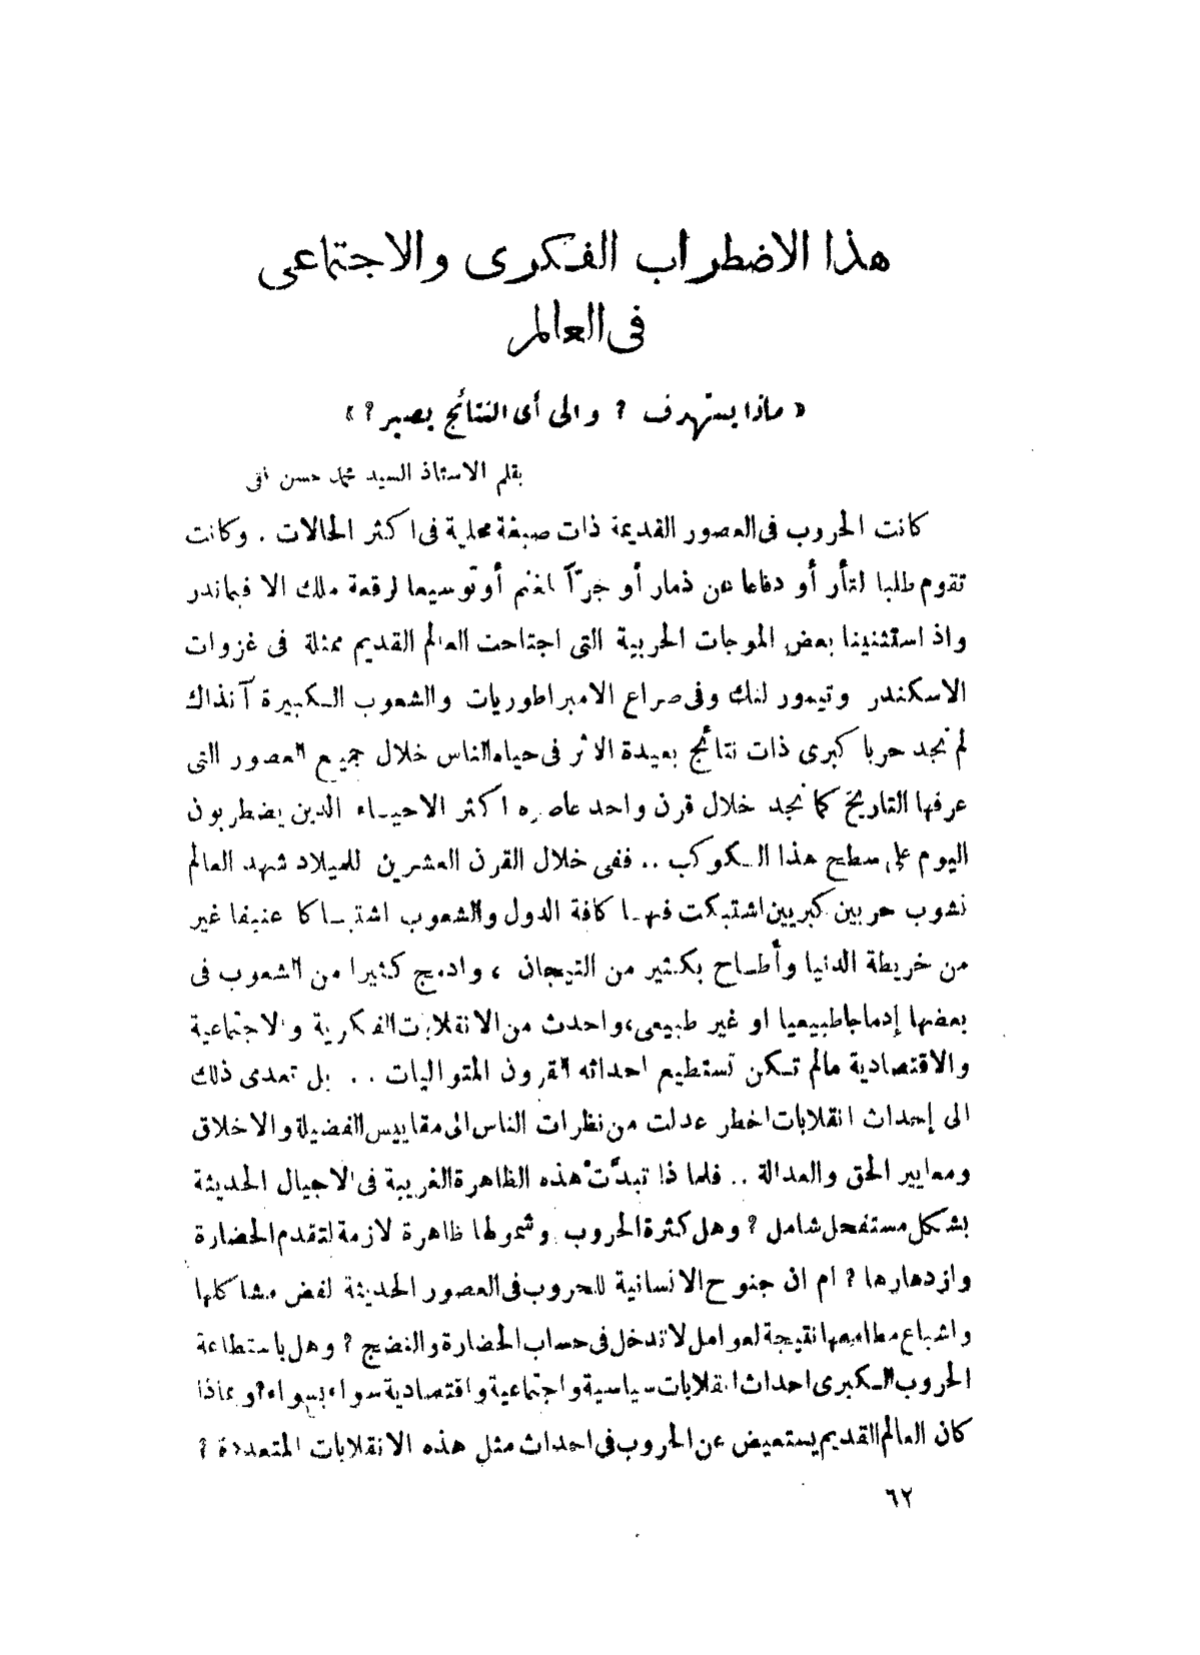 هذا الاضطراب الفكرى والاجتماعى
فى العالم
« ماذا يستهدف ؟ والى أى النتائج يصير ؟ »
بقلم الاستاذ السيد محمد حسن فقى
كانت الحروب فى العصور القديمة ذات صبغة محلية فى اكثر الحالات . وكانت
تقوم طلبا لثأر أو دفاعا عن ذمار أو جرّاً لمغنم أو توسيعا لرقعة ملك الا فيما ندر
واذ استثنينا بعض الموجات الحربية التى اجتاحت العالم القديم ممثلة فى غزوات
الاسكندر وتيمور لنك وفى صراع الامبراطوريات والشعوب الكبيرة آنذاك
لم نجد حربا كبرى ذات نتائج بعيدة الاثر فى حياة الناس خلال جميع العصور التى
عرفها التاريخ كما نجد خلال قرن واحد عاصره اكثر الاحياء الذين يضطربون
اليوم على سطح هذا الكوكب .. ففى خلال القرن العشرين للميلاد شهد العالم
نشوب حربين كبريين اشتبكت فيها كافة الدول والشعوب اشتباكا عنيفا غير
من خريطة الدنيا وأطاح بكثير من التيجان ، وادمج كثيرا من الشعوب فى
بعضها إدماجا طبيعيا او غير طبيعى، واحدث من الانقلابات الفكرية والاجتماعية
والاقتصادية مالم تكن تستطيع احداثه القرون المتواليات .. بل تعدى ذلك
الى إحداث انقلابات اخطر عدلت من نظرات الناس الى مقاييس الفضيلة والاخلاق
ومعايير الحق والعدالة .. فلما ذا تبدَّتْ هذه الظاهرة الغريبة فى الاجيال الحديثة
بشكل مستفحل شامل ؟ وهل كثرة الحروب وشمولها ظاهرة لازمة لتقدم الحضارة
وازدهارها ؟ ام ان جنوح الانسانية للحروب فى العصور الحديثة لفض مشاكلها
واشباع مطامعها نتيجة لعوامل لا تدخل فى حساب الحضارة والنضج ؟ وهل باستطاعة
الحروب الكبرى احداث انقلابات سياسية واجتماعية واقتصادية سواء بسواء؟ و بماذا
كان العالم القديم يستعيض عن الحروب فى احداث مثل هذه الانقلابات المتعددة ؟
٦٢